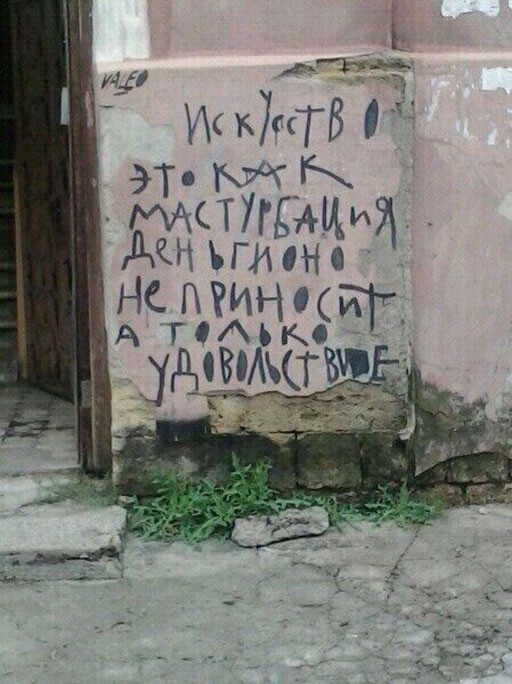 VALEO
ИскУсстВО
это КАК
МАСТУРБАЦИЯ
ДЕНЬГИОНО
НеПРИНОСИТ
А ТОЛЬКО
УДОВОЛЬСТВИЕ